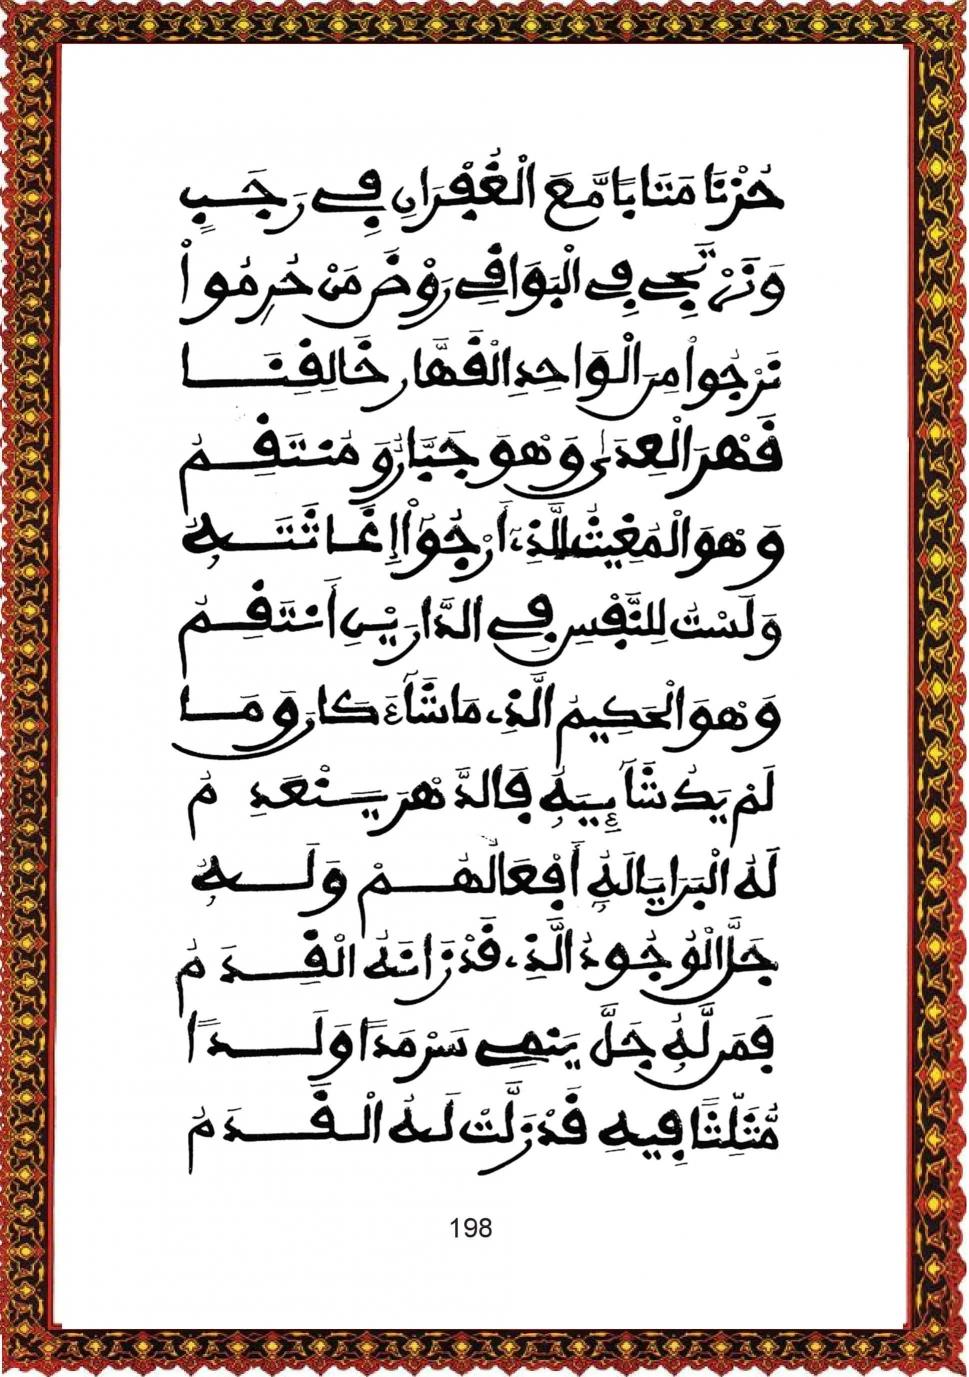 حُزْنَا مَتَابًا مَّعَ الْغُفْرَانِ فِي رَجَبٍ
وَنَرْتَجِي فِي الْبَوَاقِي رَوْضَ مَنْ حُرِمُوا
نَرْجُوا مِنَ الْوَاحِدِ الْقَهَّارِ خَالِقِنَا
قَهْرَ الْعِدَى وَهْوَ جَبَّارٌ وَمُنْتَقِمُ
وَهْوَ الْمُغِيثُ الَّذِي أَرْجُوا إِغَاثَتَهُ
وَلَسْتُ لِلنَّفْسِ فِي الدَّارَيْنِ أَنْتَقِمُ
وَهْوَ الْحَكِيمُ الَّذِي مَا شَاءَ كَانَ وَمَا
لَمْ يَكُ شَائِيَهُ فَالدَّهْرَ يَنْعَدِمُ
لَهُ الْبَرَايَا لَهُ أَفْعَالُهُمْ وَلَهُ
جَلَّ الْوُجُودُ الَّذِي قَدْ زَانَهُ الْقِدَمُ
فَمَن لَّهُ جَلَّ يَنْمِي سَرْمَدًا وَلَدًا
مُّثَلِّثًا فِيهِ قَدْ زَلَّتْ لَهُ الْقَدَمُ
198